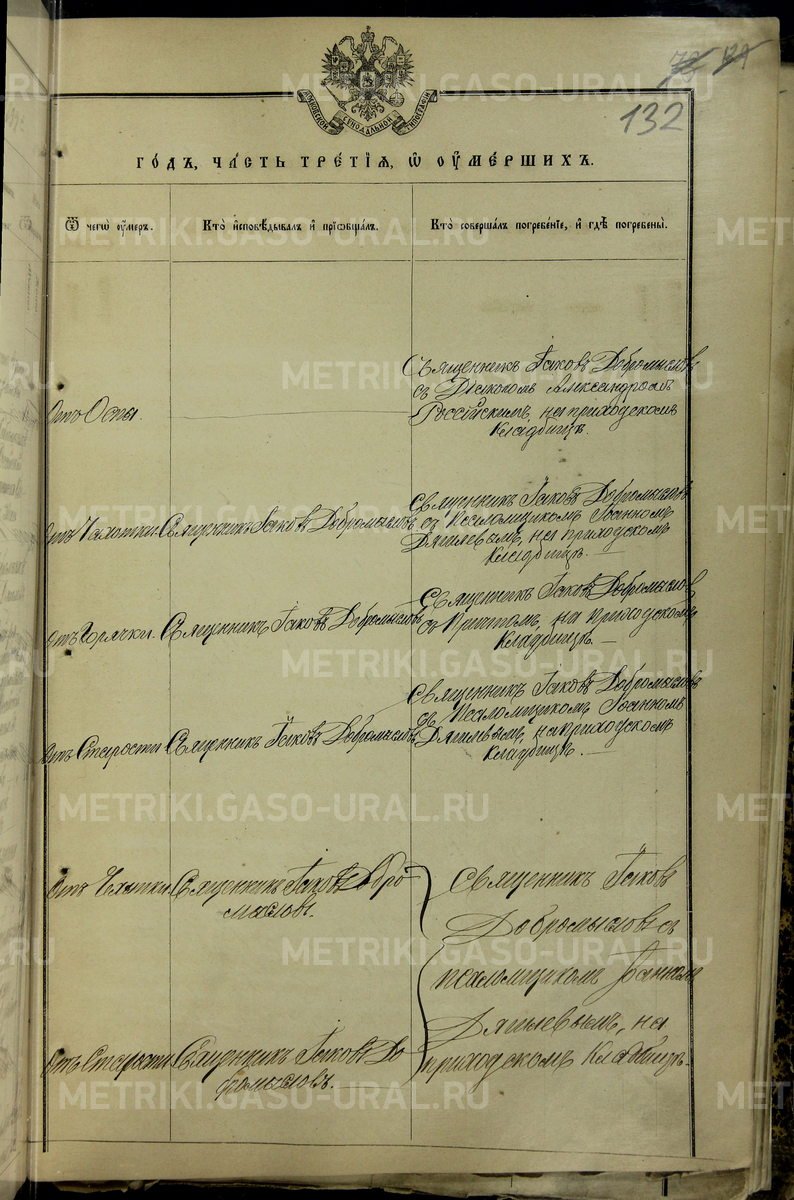 132
МОСКОВСКОЙ СѴНОДАЛЬНОЙ ТИПОГРАФІИ
ГО́ДЪ, ЧА́СТЬ ТРЕ́ТІѦ, Ѡ҆ ОУ҆МЕ́РШИХЪ.
Ѿ чегѡ̀ оу҆́меръ.
Кто̀ и҆сповѣ́дывалъ и҆ прїѡбща́лъ.
Кто̀ соверша́лъ погребе́нїе, и҆ гдѣ̀ погребены̀.
Отъ Оспы.
Священникъ Іаковъ Добромысловъ
съ Діакономъ Александромъ
Россійскимъ, на приходскомъ
Кладбищѣ.
Отъ Чахотки.
Священникъ Іаковъ Добромысловъ
Священникъ Іаковъ Добромысловъ
съ Псаломщикомъ Іоанномъ
Дягилевымъ, на приходскомъ
Кладбищѣ.
Отъ Горячки.
Священникъ Іаковъ Добромысловъ
Священникъ Іаковъ Добромысловъ
съ Причтомъ, на приходскомъ
Кладбищѣ.
Отъ Старости
Священникъ Іаковъ Добромысловъ
Священникъ Іаковъ Добромысловъ
съ Псаломщикомъ Іоанномъ
Дягилевымъ, на приходскомъ
Кладбищѣ.
Отъ
Священникъ Іаковъ Добро
мысловъ.
Священникъ Іаковъ
Добромысловъ съ
псаломщикомъ Іоанномъ
Дягилевымъ, на
приходскомъ Кладбищѣ.
Отъ Старости
Священникъ Іаковъ До
бромысловъ.
METRIKI.GASO-URAL.RU